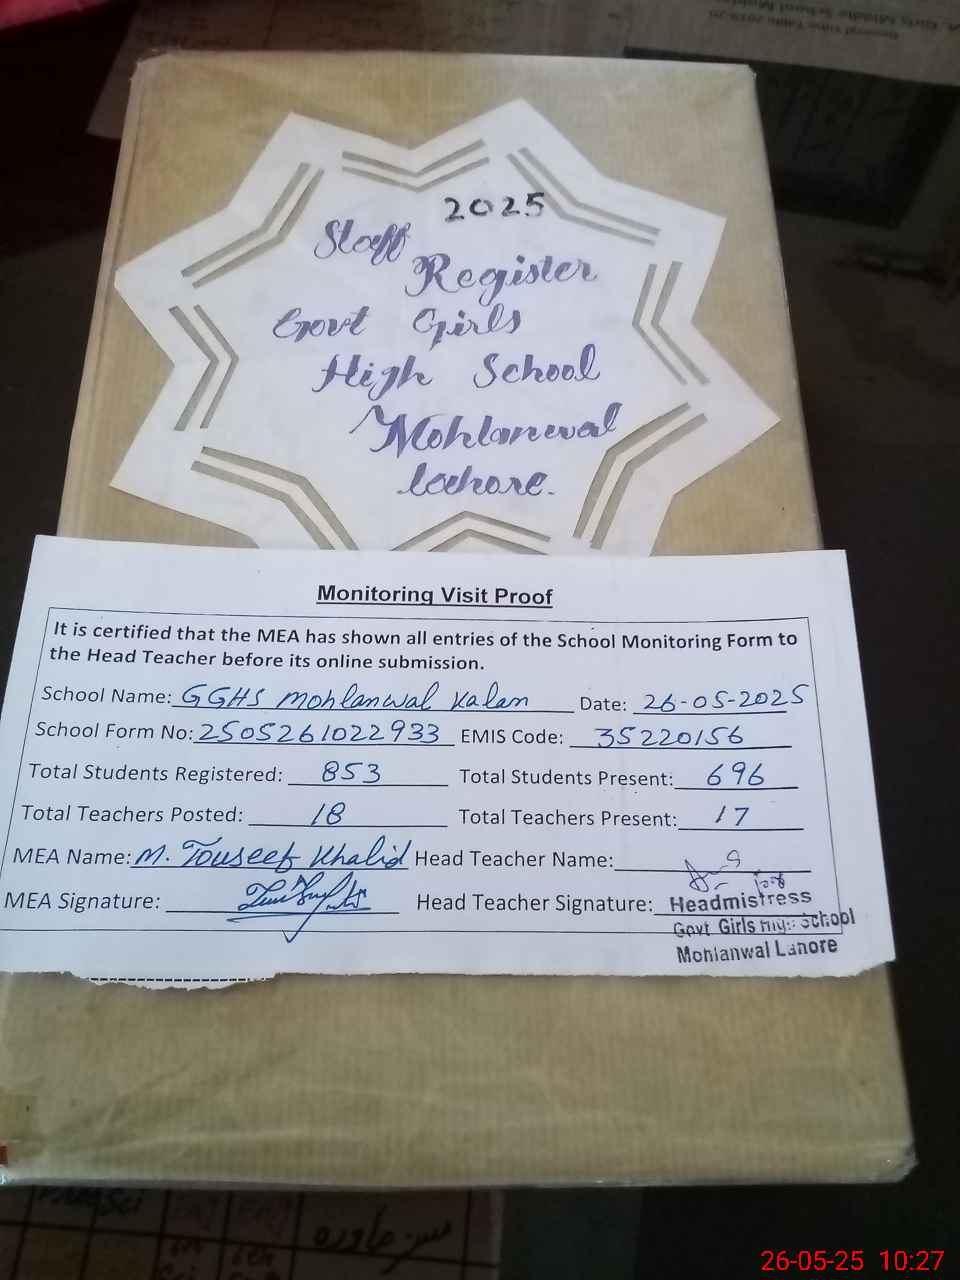 2025
Staff
Register
Govt Girls
High School
Mohlanwal
Lahore.
Monitoring Visit Proof
It is certified that the MEA has shown all entries of the School Monitoring Form to
the Head Teacher before its online submission.
School Name: GGHS Mohlanwal Kalan Date: 26-05-2025
School Form No: 2505261022933 EMIS Code: 35220156
Total Students Registered: 853 Total Students Present: 696
Total Teachers Posted: 18 Total Teachers Present: 17
MEA Name: M. Touseef Khalid Head Teacher Name:
MEA Signature: Head Teacher Signature:
Headmistress
Govt Girls High School
Mohlanwal Lahore
26-05-25 10:27